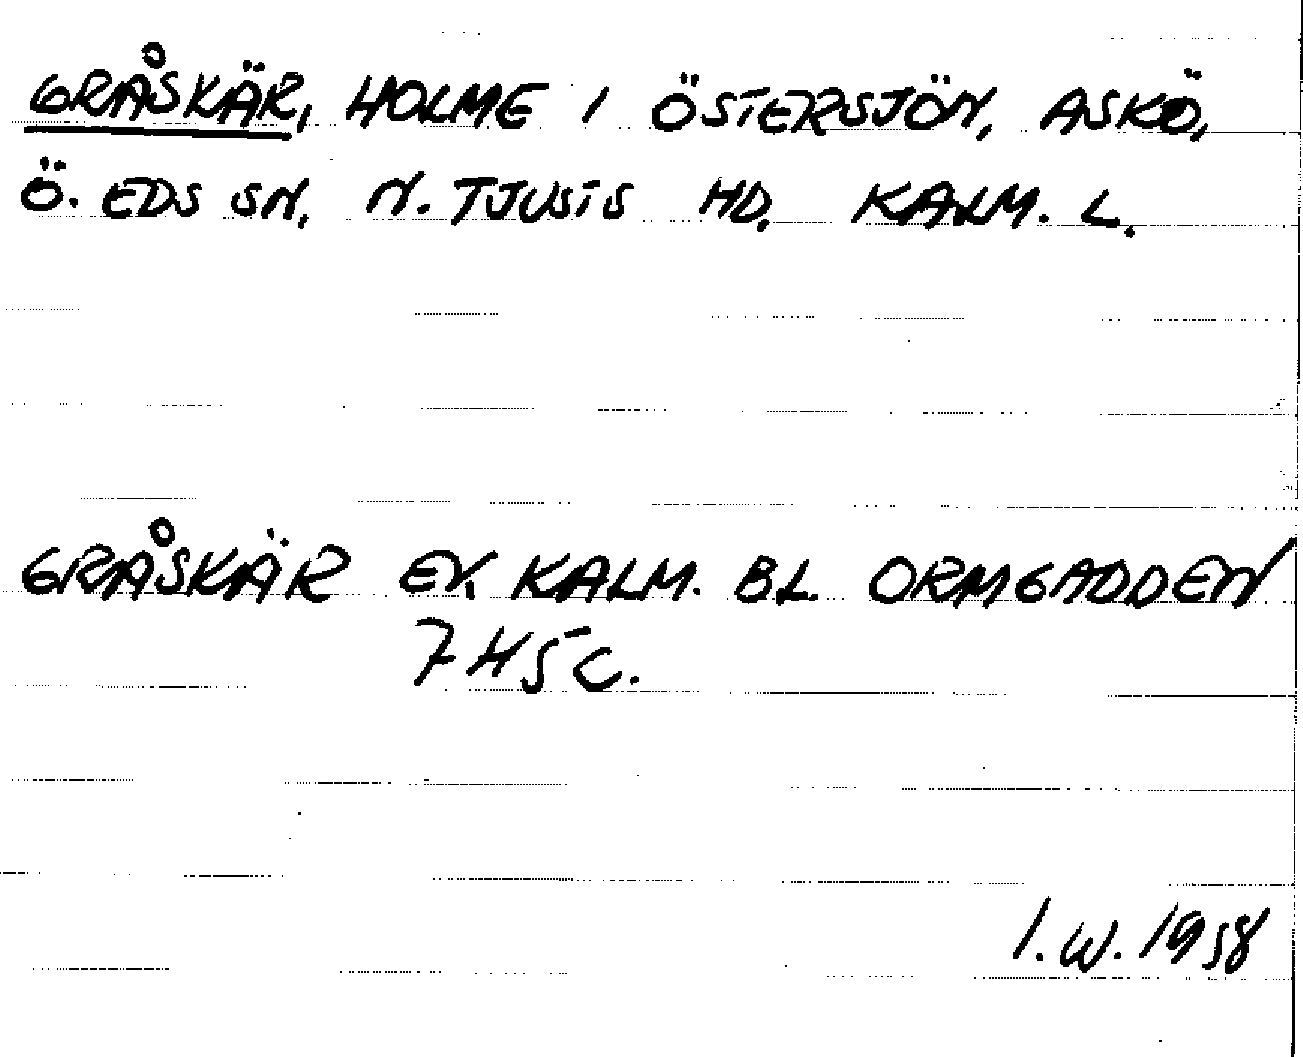 GRÅSKÄR, HOLME I ÖSTERSJÖN, ASKÖ,
Ö. EDS SN, N. TJUSTS HD, KALM. L.
GRÅSKÄR EK KALM. BL. ORMGADDEN
7H5c.
I.W. 1958